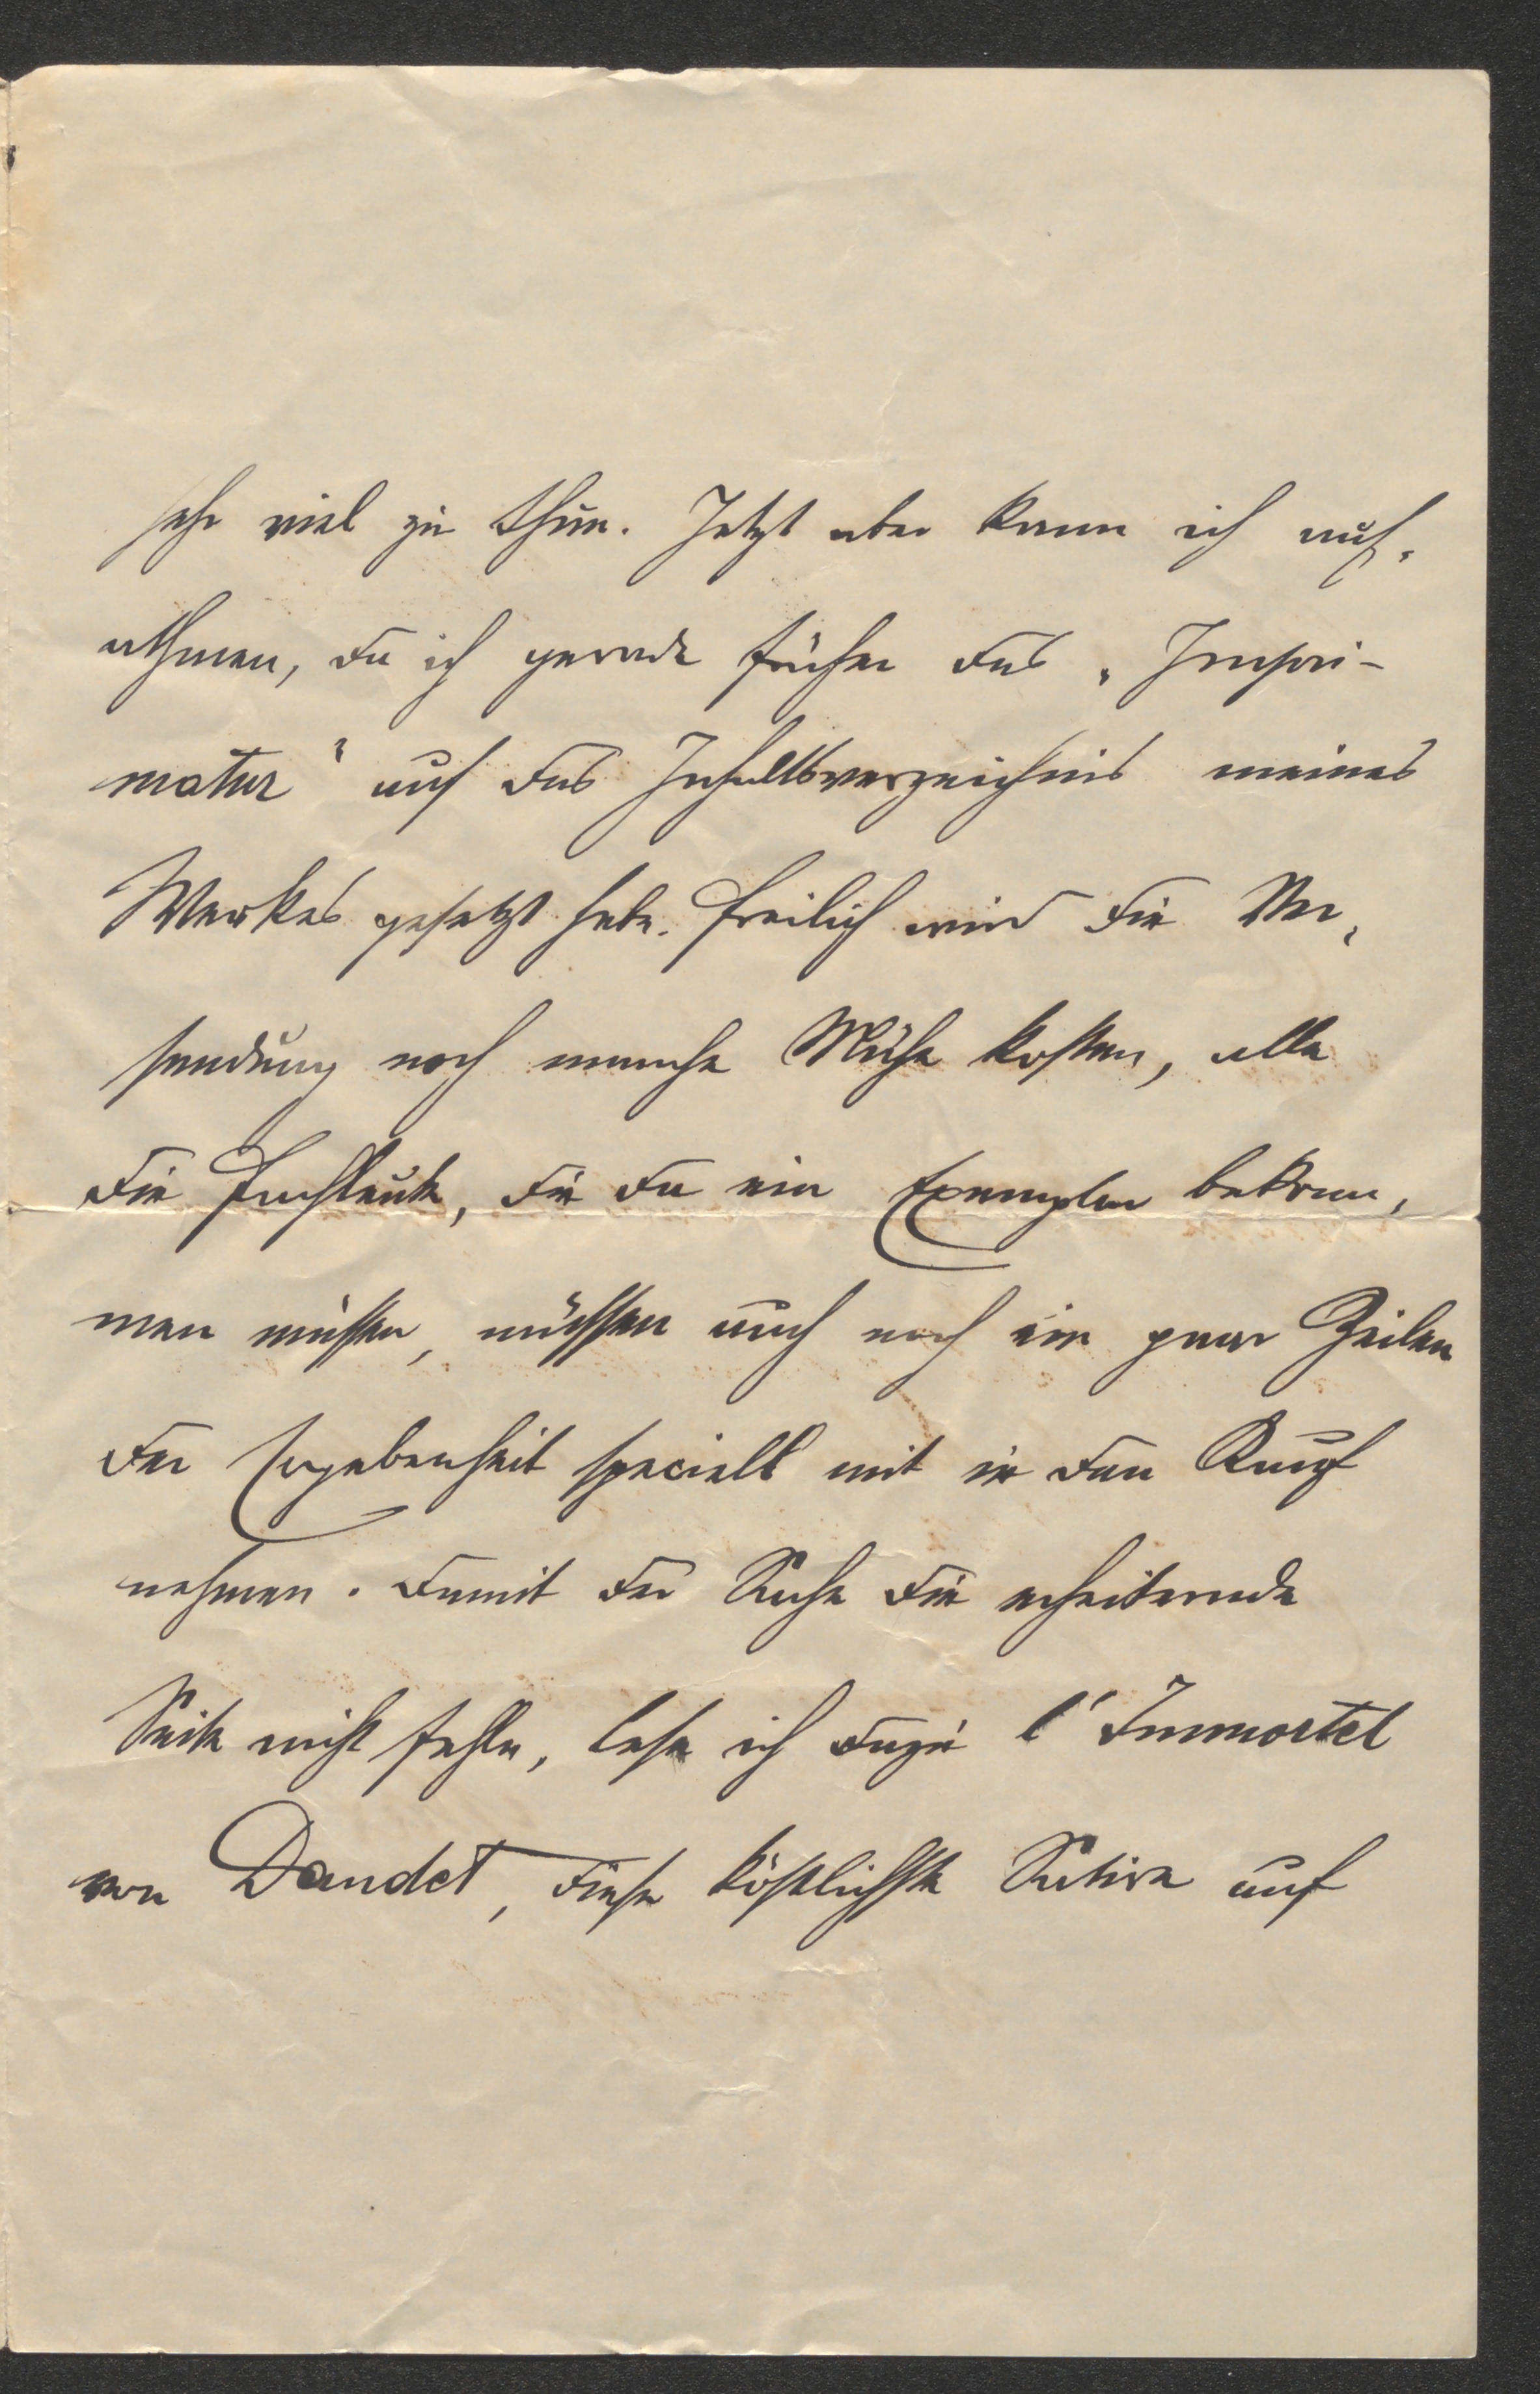 sehr viel zu thun. Jetzt aber kann ich auf-
athmen, da ich gerade früher das „Impri-
matur“ auf das Inhaltsverzeichnis meines
Werkes gesetzt habe. Freilich wird die Ver-
sendung noch manche Mühe kosten, alle
die Fachleute, die da ein Exemplar bekom-
men müssen, müssen auch noch ein paar Zeilen
der Ergebenheit speciell mit in den Kauf
nehmen. Damit der Sache die erheiternde
Seite nicht fehle, lese ich dazu l'Immortel
von Daudet, diese köstlichste Satire auf